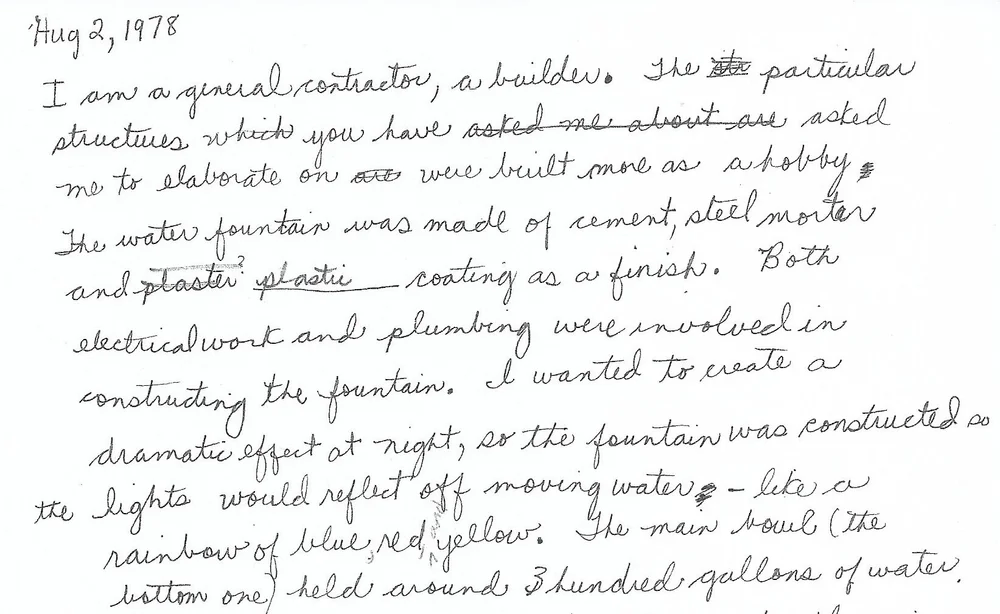 Aug 2, 1978
I am a general contractor, a builder. The particular
structures which you have asked me about are asked
me to elaborate on are were built more as a hobby.
The water fountain was made of cement, steel morter
and plaster? plastic coating as a finish. Both
electrical work and plumbing were involved in
constructing the fountain. I wanted to create a
dramatic effect at night, so the fountain was constructed so
the lights would reflect off moving water - like a
rainbow of blue, red, and yellow. The main bowl (the
bottom one) held around 3 hundred gallons of water.